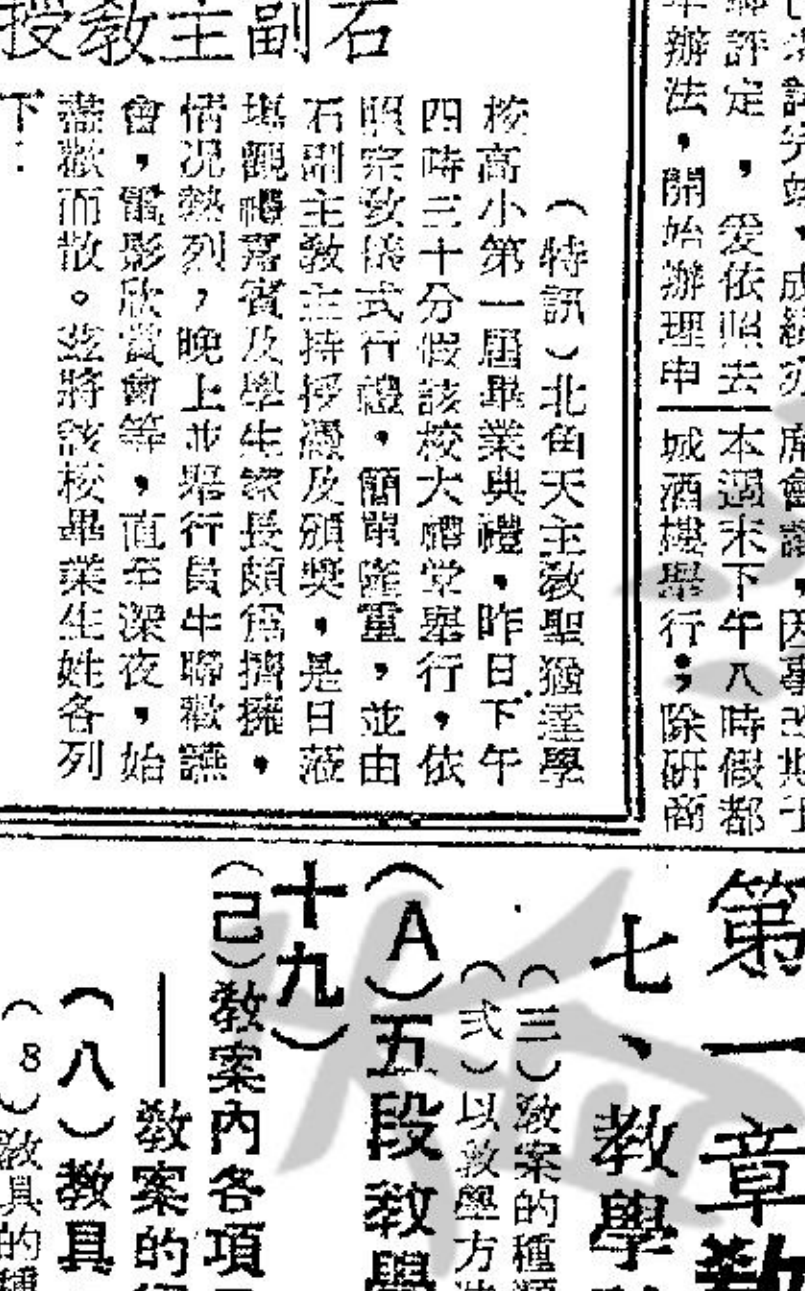 石副主教授
（特訊）北角天主教聖猶達學
校高小第一屆畢業典禮，昨日下午
四時三十分假該校大禮堂舉行，依
照宗教儀式行禮，簡單隆重，並由
石副主教主持授憑及頒獎，是日蒞
塲觀禮嘉賓及學生家長頗爲擠擁，
情况熱烈，晚上並舉行員生聯歡讌
會，電影欣賞會等，直至深夜，始
盡歡而散。茲將該校畢業生姓名列
下：
辦法，開始辦理申
評定，爰依照去
成績
席會議，因事改期
本週末下午八時假都
城酒樓舉行；除研商
第一章敎
七、教學
（三）敎案的種類
（式）以敎學方法
（A）五段教學
十九）
（己）敎案內各項
——敎案的
（八）教具
（8）敎具的種